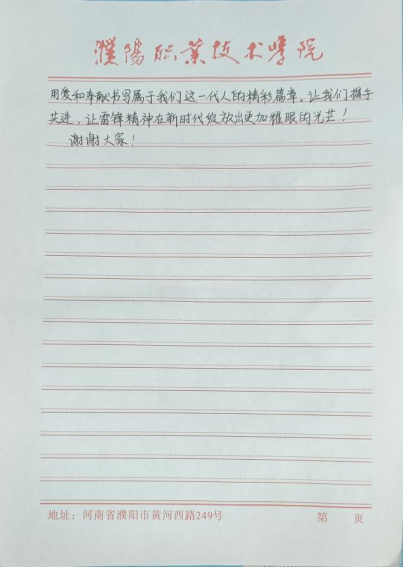 濮阳职业技术学院
用爱和奉献书写属于我们这一代人的精彩篇章。让我们携手
共进，让雷锋精神在新时代绽放出更加耀眼的光芒！
谢谢大家！
地址：河南省濮阳市黄河西路249号
第 页